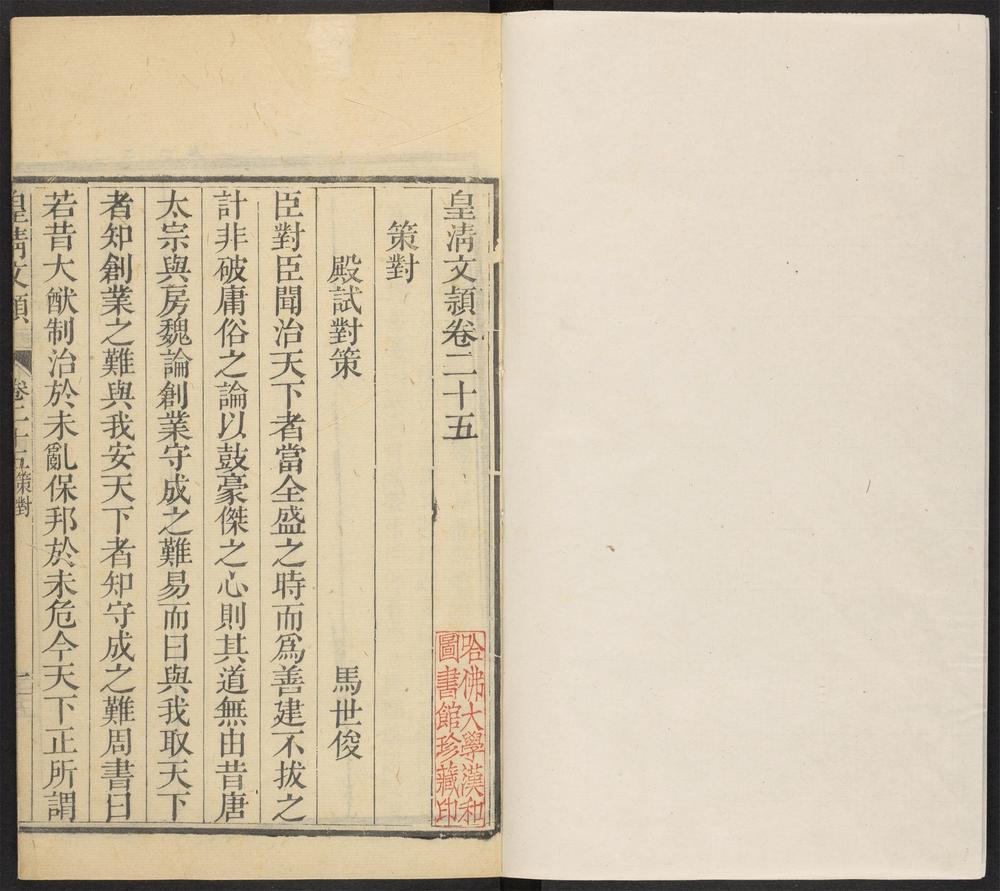 皇清文潁卷二十五
策對
殿試對策 馬世俊
臣對臣聞治天下者當全盛之時而爲善建不拔之
計非破庸俗之論以鼓豪傑之心則其道無由昔唐
太宗與房魏論創業守成之難易而曰與我取天下
者知創業之難與我安天下者知守成之難周書曰
若昔大猷制治於未亂保邦於未危今天下正所謂
皇清文潁 卷二十五 策對 一
哈佛大學漢和
圖書館珍藏印